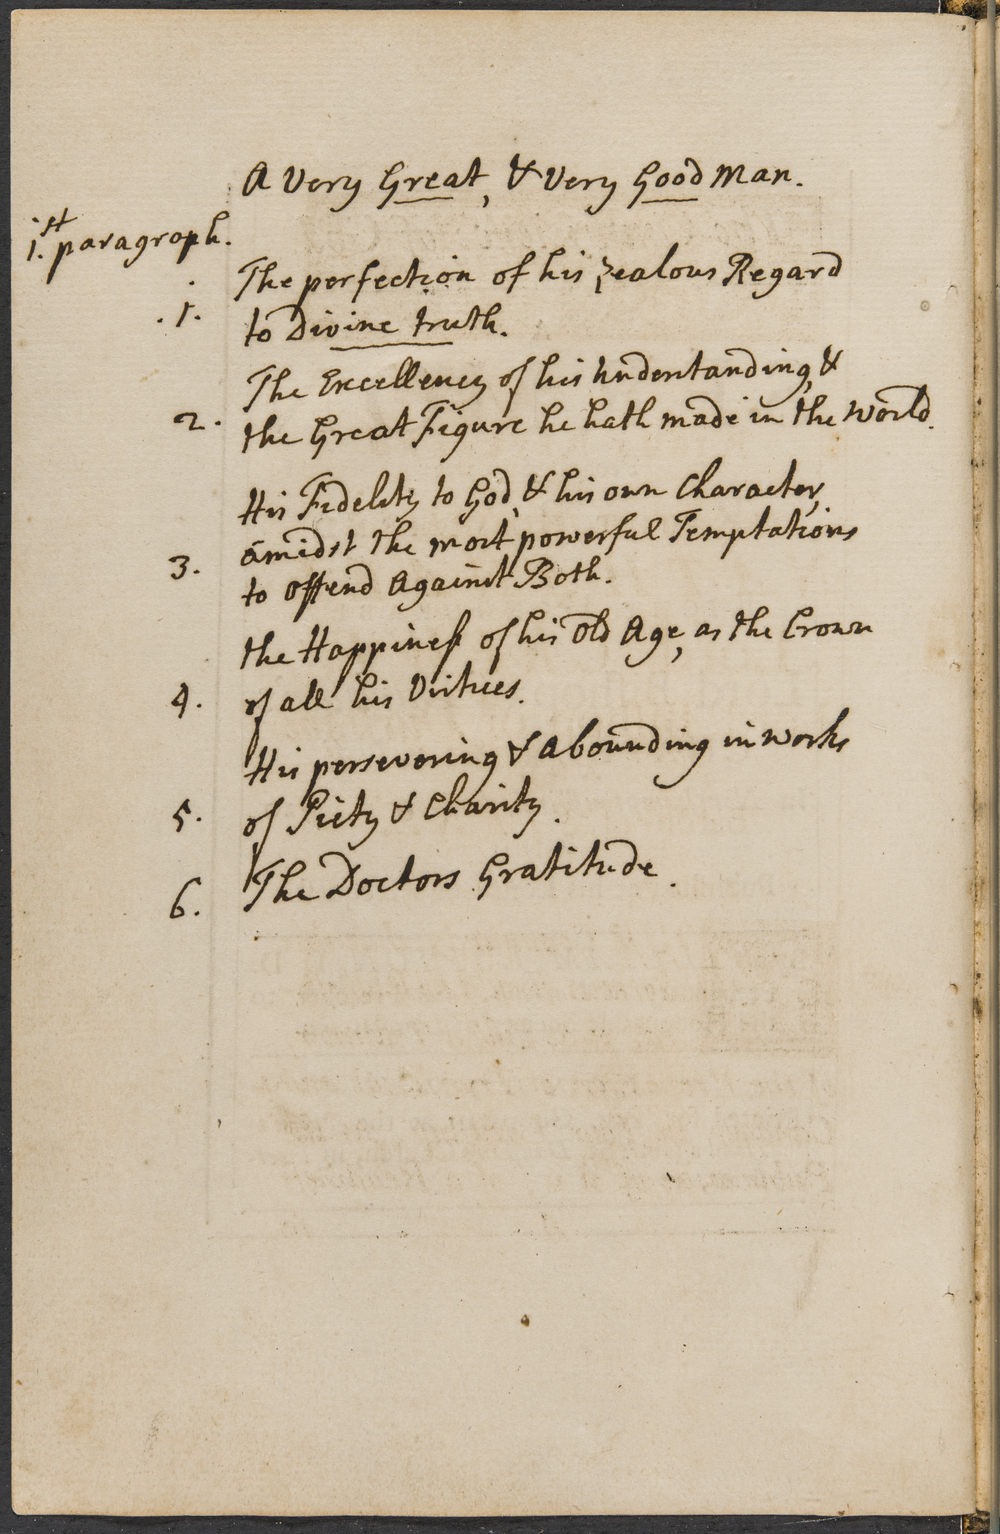 A Very Great, & Very Good Man.
1st. paragraph.
The perfection of his Zealous Regard
1. to Divine truth.
The Excellency of his understanding, &
2. the Great Figure he hath made in the World.
His Fidelity to God, & his own Character,
amidst the most powerful Temptations
3. to offend Against Both.
the Happiness of his Old Age, as the Crown
4. of all his Virtues.
His persevering & Abounding in works
5. of Piety & Charity.
6. The Doctors Gratitude.